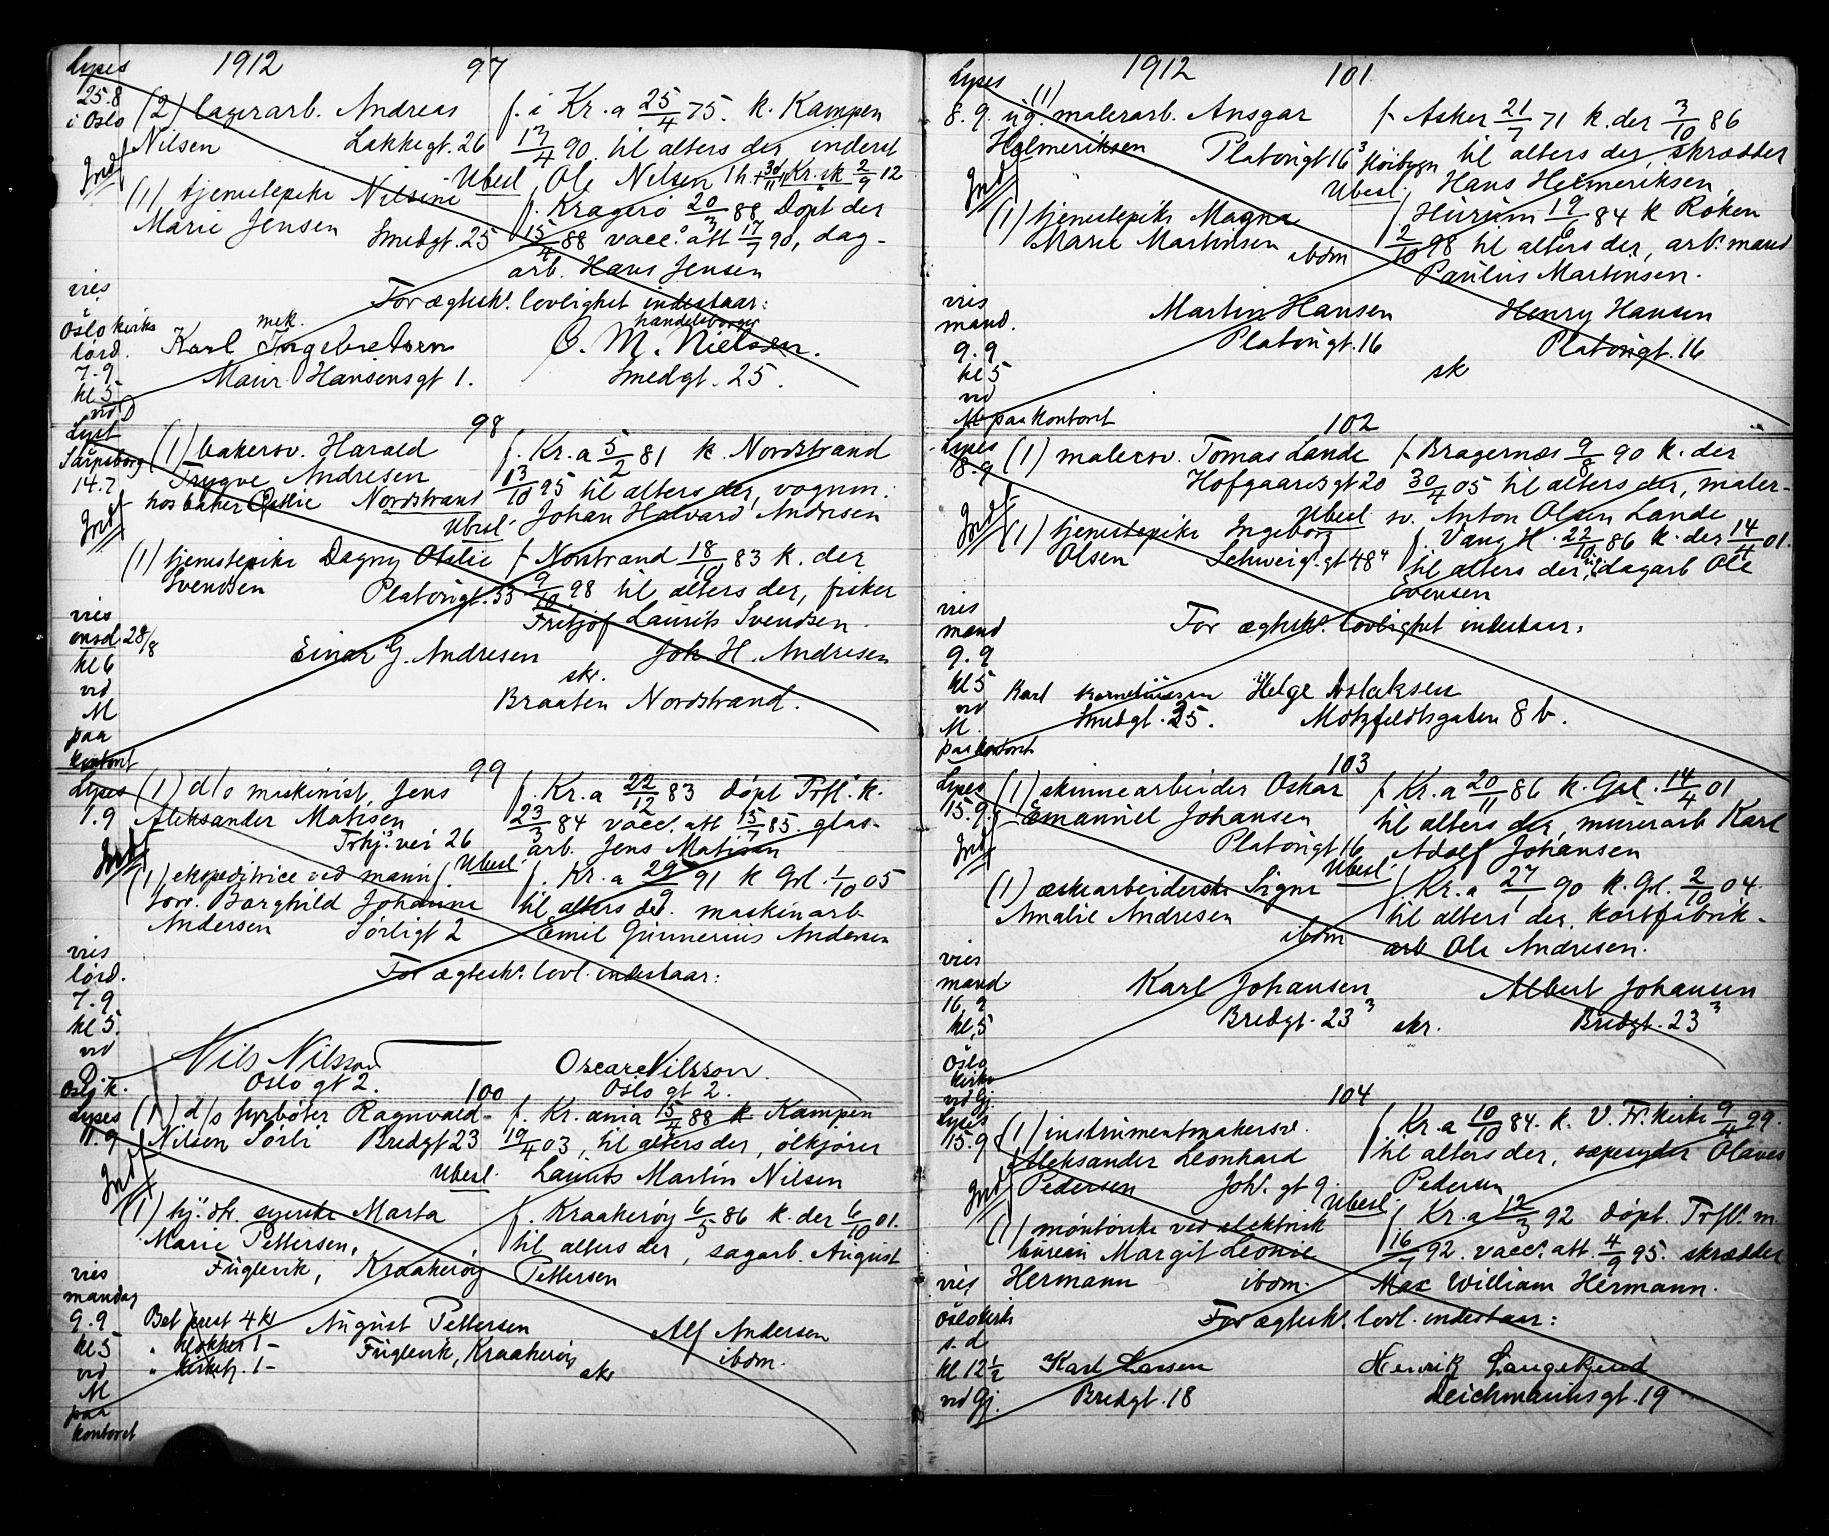 1912 97
Lyses
25.8
i Oslo
Indf
(2) lagerarb. Andreas
Nilsen Lakkegt. 26
f. i Kr.a 25/4 75. k. Kampen
13/4 90 til alters der, inderst
Ubesl. Ole Nilsen Kr. sk 2/9 12
(1) tjenestepike Nilsine
Marie Jensen Smedgt. 25
f. Kragerø 20/3 88 Døpt der
15/4 88 vacc. att 17/7 90, dag-
arb. Hans Jensen
vies
i
Oslo kirke
lørd.
7.9
kl 5
vid D
For ægtesk. lovlighet indestaar:
mek. handelsborger
Karl Ingebretsen O. M. Nielsen.
Maur. Hansensgt 1. Smedgt. 25.
98
Lyst
Sarpsborg
14.7
Indf
(1) bakersv. Harald
Trygve Andresen
hos baker Nordstrand
f. Kr.a 5/2 81 k. Nordstrand
13/10 95 til alters der, vognm.
Ubesl. Johan Halvard Andresen
(1) tjenestepike Dagny Otilie
Svendsen Platousgt. 33
f Nordstrand 18/10 83 k. der
9/10 98 til alters der, fisker
Fritjof Laurits Svendsen.
vies
onsd 28/8
kl 6
vid
M
paa
kontoret
Einar G. Andresen Joh. H. Andresen
skr.
Braaten Nordstrand.
99
Lyses
1.9
Indf
(1) d/s maskinist, Jens
Aleksander Matisen
Trhj. vei 26
f. Kr.a 22/12 83 døpt Trfl. k.
23/3 84 vacc. att 15/7 85. glas-
arb. Jens Matisen
Ubesl.
(1) ekspeditrice ved manuf.
forr. Borghild Johanne
Andersen Sørligt 2
f. Kr.a 29/9 91 k Grl. 1/10 05
til alters der. maskinarb
Emil Gunnerius Andersen
vies
lørd.
7.9
kl 5.
vid
D
Oslo k.
For ægtesk. lovl. indestaar:
Nils Nilsson Oscar Nilsson.
Oslo gt 2. Oslo gt 2.
100
Lyses
11.9
Indf
(1) d/s fyrbøter Ragnvald
Nilsen Sørli Bredgt 23
f. Kr.ania 15/4 88 k Kampen
19/4 03, til alters der, ølkjører
Ubesl. Laurits Martin Nilsen
(1) hj. dtr. syerske Marta
Marie Pettersen,
Fuglevik, Kraakerøy
f. Kraakerøy 6/5 86 k. der 6/10 01.
til alters der, sagarb. August
Pettersen
vies
mandag
9.9
kl 5
vid
M
paa
kontoret
Bet prest 4 kr
" klokker 1 -
" kirketj. 1 -
August Pettersen Alf Andersen
Fuglevik, Kraakerøy ibdm.
skr
1912 101
Lyses
8.9.
Indf
(1)
ug. malerarb. Ansgar
Helmeriksen Platousgt 16 3 Høibygn
f. Asker 21/7 71 k. der 3/10 86
til alters der, skrædder
Ubesl. Hans Helmeriksen,
(1) tjenestepike Magna
Marie Martinsen ibdm
f Hurum 19/6 84 k Røken
2/10 98 til alters der, arb. mand
Paulus Martinsen.
vies
mand.
9.9
kl 5
vid
M paa kontoret
Martin Hansen Henry Hansen
Platousgt. 16 Platousgt. 16
sk
102
Lyses
8.9
Indf
(1) malersv. Tomas Lande
Hofgaardsgt 20
f Bragernæs 9/8 90 k. der
30/4 05 til alters der, maler-
Ubesl sv. Anton Olsen Lande
(1) tjenestepike Ingeborg
Olsen Schweig. gt 48 4
f. Vang H. 22/10 86 k. der 14/4 01.
til alters der, dagarb Ole
Evensen
vies
mand
9.9
kl 5
vid
M.
paa kontoret
For ægtesk. lovlighet indestaar:
Karl Korneliussen Helge Aslaksen
Smedgt. 35. Motzfeldtsgaten 8 b.
103
Lyses
15.9.
Indf
(1) skinnearbeider Oskar
Emanuel Johansen
Platousgt 16
f Kr.a 20/11 86 k. Grl. 14/4 01
til alters der, murerarb Karl
Adolf Johansen
Ubesl.
(1) æskearbeiderske Signe
Amalie Andresen
ibdm
f Kr.a 27/1 90 k. Gl. 2/10 04.
til alters der, kortfabrik-
arb Ole Andresen.
vies
mand
16.9
kl. 5
Oslo
kirke
vid Gj.
Karl Johansen Albert Johansen
Bredgt. 23 3 skr. Bredgt. 23 3
104
Lyses
15.9
Indf
(1) instrumentmakersv.
Aleksander Leonhard
Pedersen Joh. gt 9.
f Kr.a 10/10 84. k. V. Fr. kirke 9/4 99.
til alters der, sæpesyder Olaves
Pedersen
Ubesl.
(1) montørske ved elektrisk
bureau Margit Leonie
Hermann ibdm.
f Kr.a 12/3 92 døpt. Trfl. m.
16/7 92. vacc. att. 4/9 95. skrædder
Max William Hermann.
vies
Oslo kirke
s. d
kl 12 1/2
vid Gj.
For ægtesk. lovl. indestaar:
Karl Larsen Henrik Langekjend
Bredgt. 18 Deichmannsgt. 19